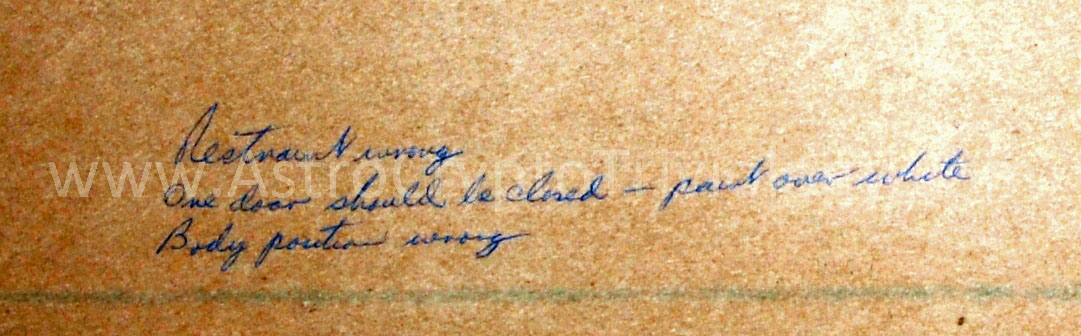 Restraint wrong
One door should be closed – paint over white
Body position wrong